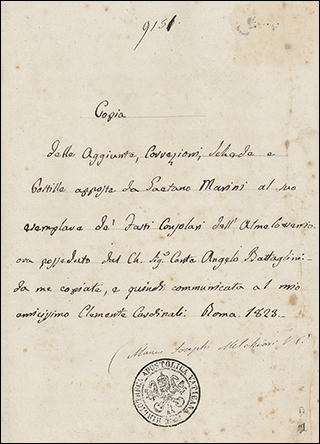 9151.
Copia
delle Aggiunte, Correzioni, Schede e
Postille apposte da Gaetano Marini al suo
esemplare de' Fasti Consolari dell' Almeloveenio
ora posseduto dal Ch. Sigr. Conte Angelo Battaglini
da me copiate, e quindi communicate al mio
amicissimo Clemente Cardinali. Roma. 1823.
(Manu Josephi Melchiorri
BIBLIOTHECA APOSTOLICA VATICANA